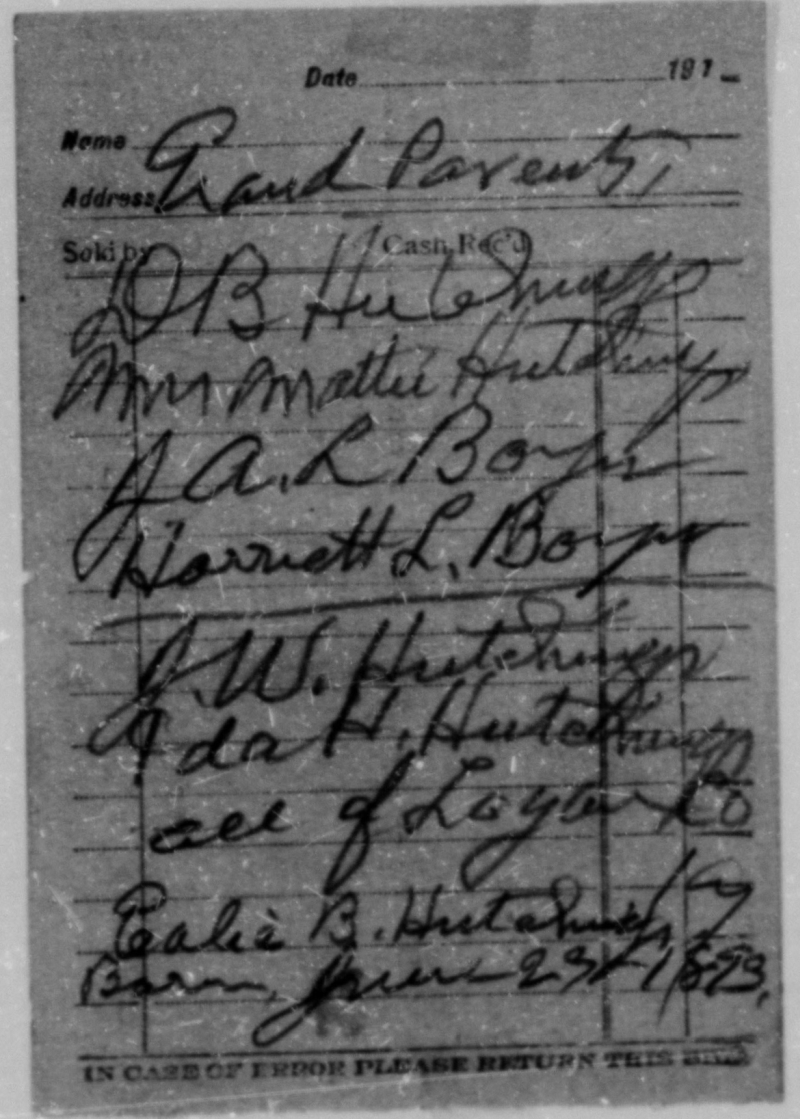 Date 191
Name
Grand Parents,
Address
Sold by Cash Rec'd
D B Hutchings
Mrs Mattie Hutchings
J A. L Boyer
Harriett L. Boyer
J. W. Hutchings
Ida H. Hutchings
all of Co
B. Hutchings
Born, June 23 1893,
IN CASE OF ERROR PLEASE RETURN THIS BILL